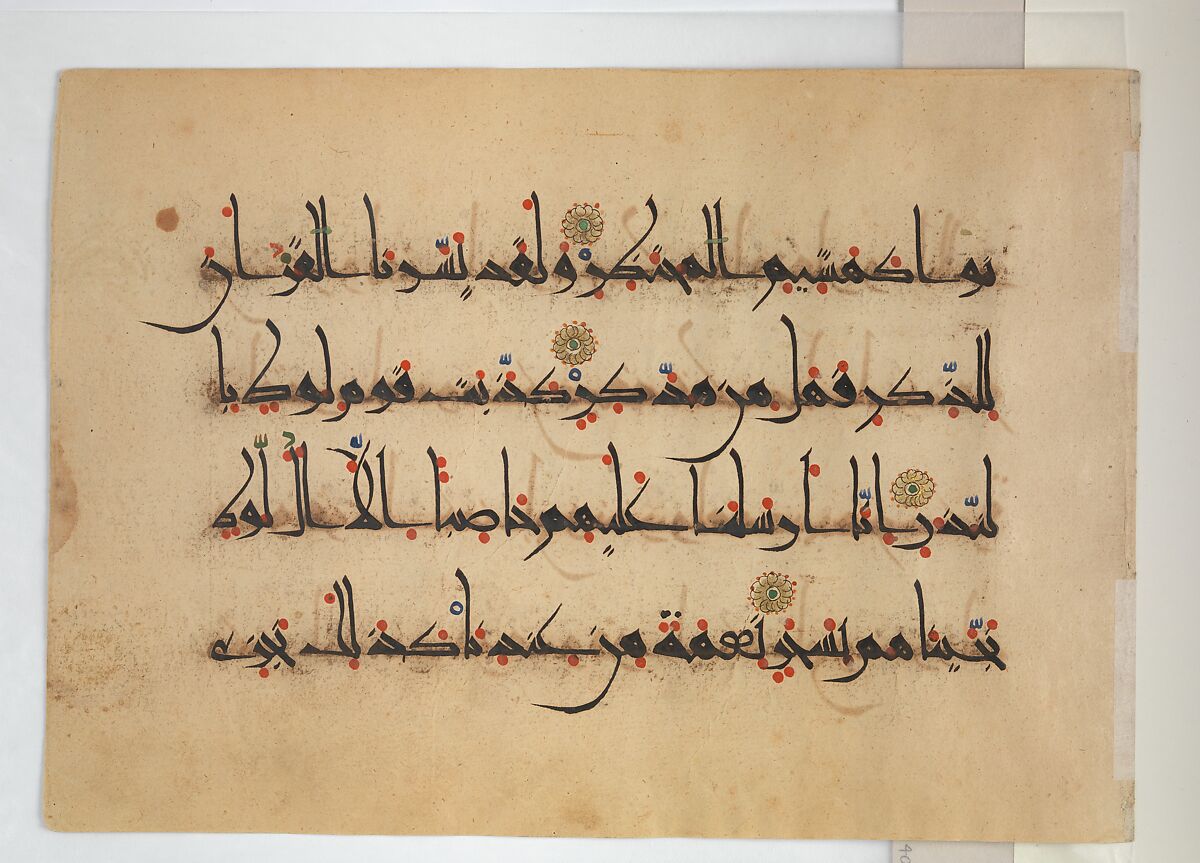 نوا كهشيم المحتظر ولقد يسرنا القران
للذكر فهل من مدكر كذبت قوم لوط با
لنذر انا ارسلنا عليهم حاصبا الا ال لوط
نجيناهم بسحر نعمة من عندنا كذلك نجزى